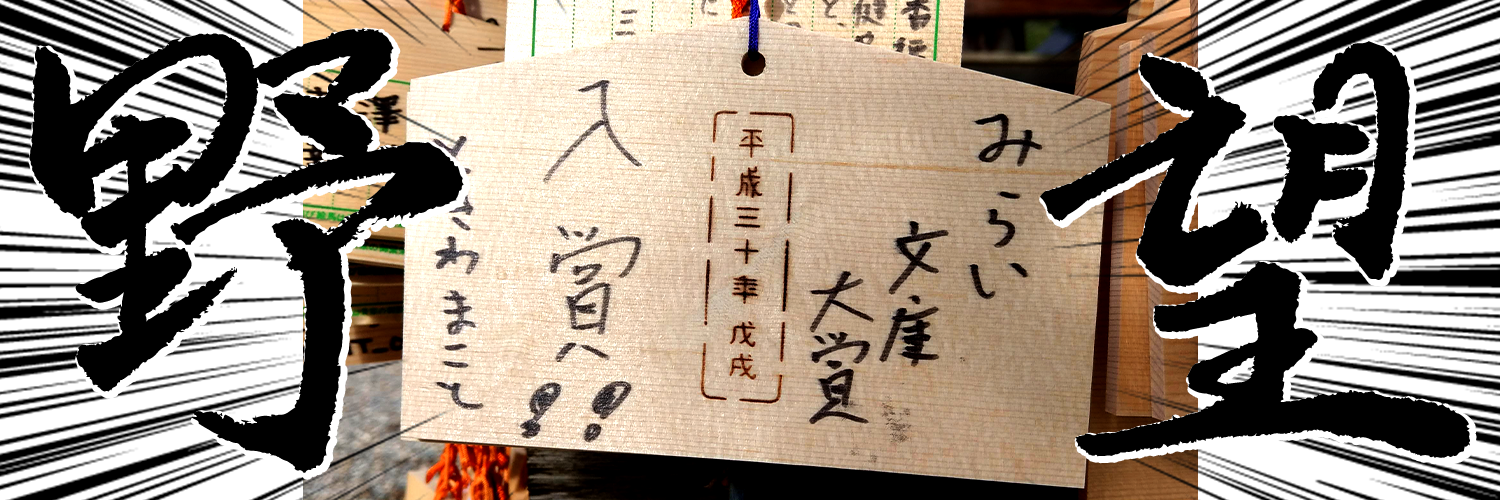 野望
みらい
文庫
大賞
平成三十年 戊戌
入賞!!
さわまこと
澤